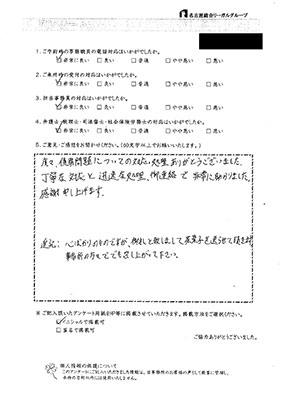 名古屋総合リーガルグループ
1.ご予約時の事務職員の電話対応はいかがでしたか。
☑非常に良い □良い □普通 □やや悪い □悪い
2.ご来所時の受付の対応はいかがでしたか。
☑非常に良い □良い □普通 □やや悪い □悪い
3.担当事務員の対応はいかがでしたか。
☑非常に良い □良い □普通 □やや悪い □悪い
4.弁護士・税理士・司法書士・社会保険労務士の対応はいかがでしたか。
☑非常に良い □良い □普通 □やや悪い □悪い
5.ご意見・ご感想をお聞かせください。(50文字以上でお願いいたします。)
度々、債務問題についての対応、処理ありがとうございました。
丁寧な対応と迅速な処理、御連絡で非常に助かりました。
感謝申し上げます。
追記:心ばかりのものですが、御礼と致しまして茶菓子を送らせて頂きます
事務所の方々でどうぞ召し上がって下さい。
※ご記入頂いたアンケート用紙をHP等に掲載させていただきます。掲載方法をご選択ください。
☑イニシャルで掲載可
□匿名で掲載可
ご協力ありがとうございました。
個人情報の保護について
このアンケートにご記入いただきました情報は、当事務所のお客様の声として厳重に管理し、